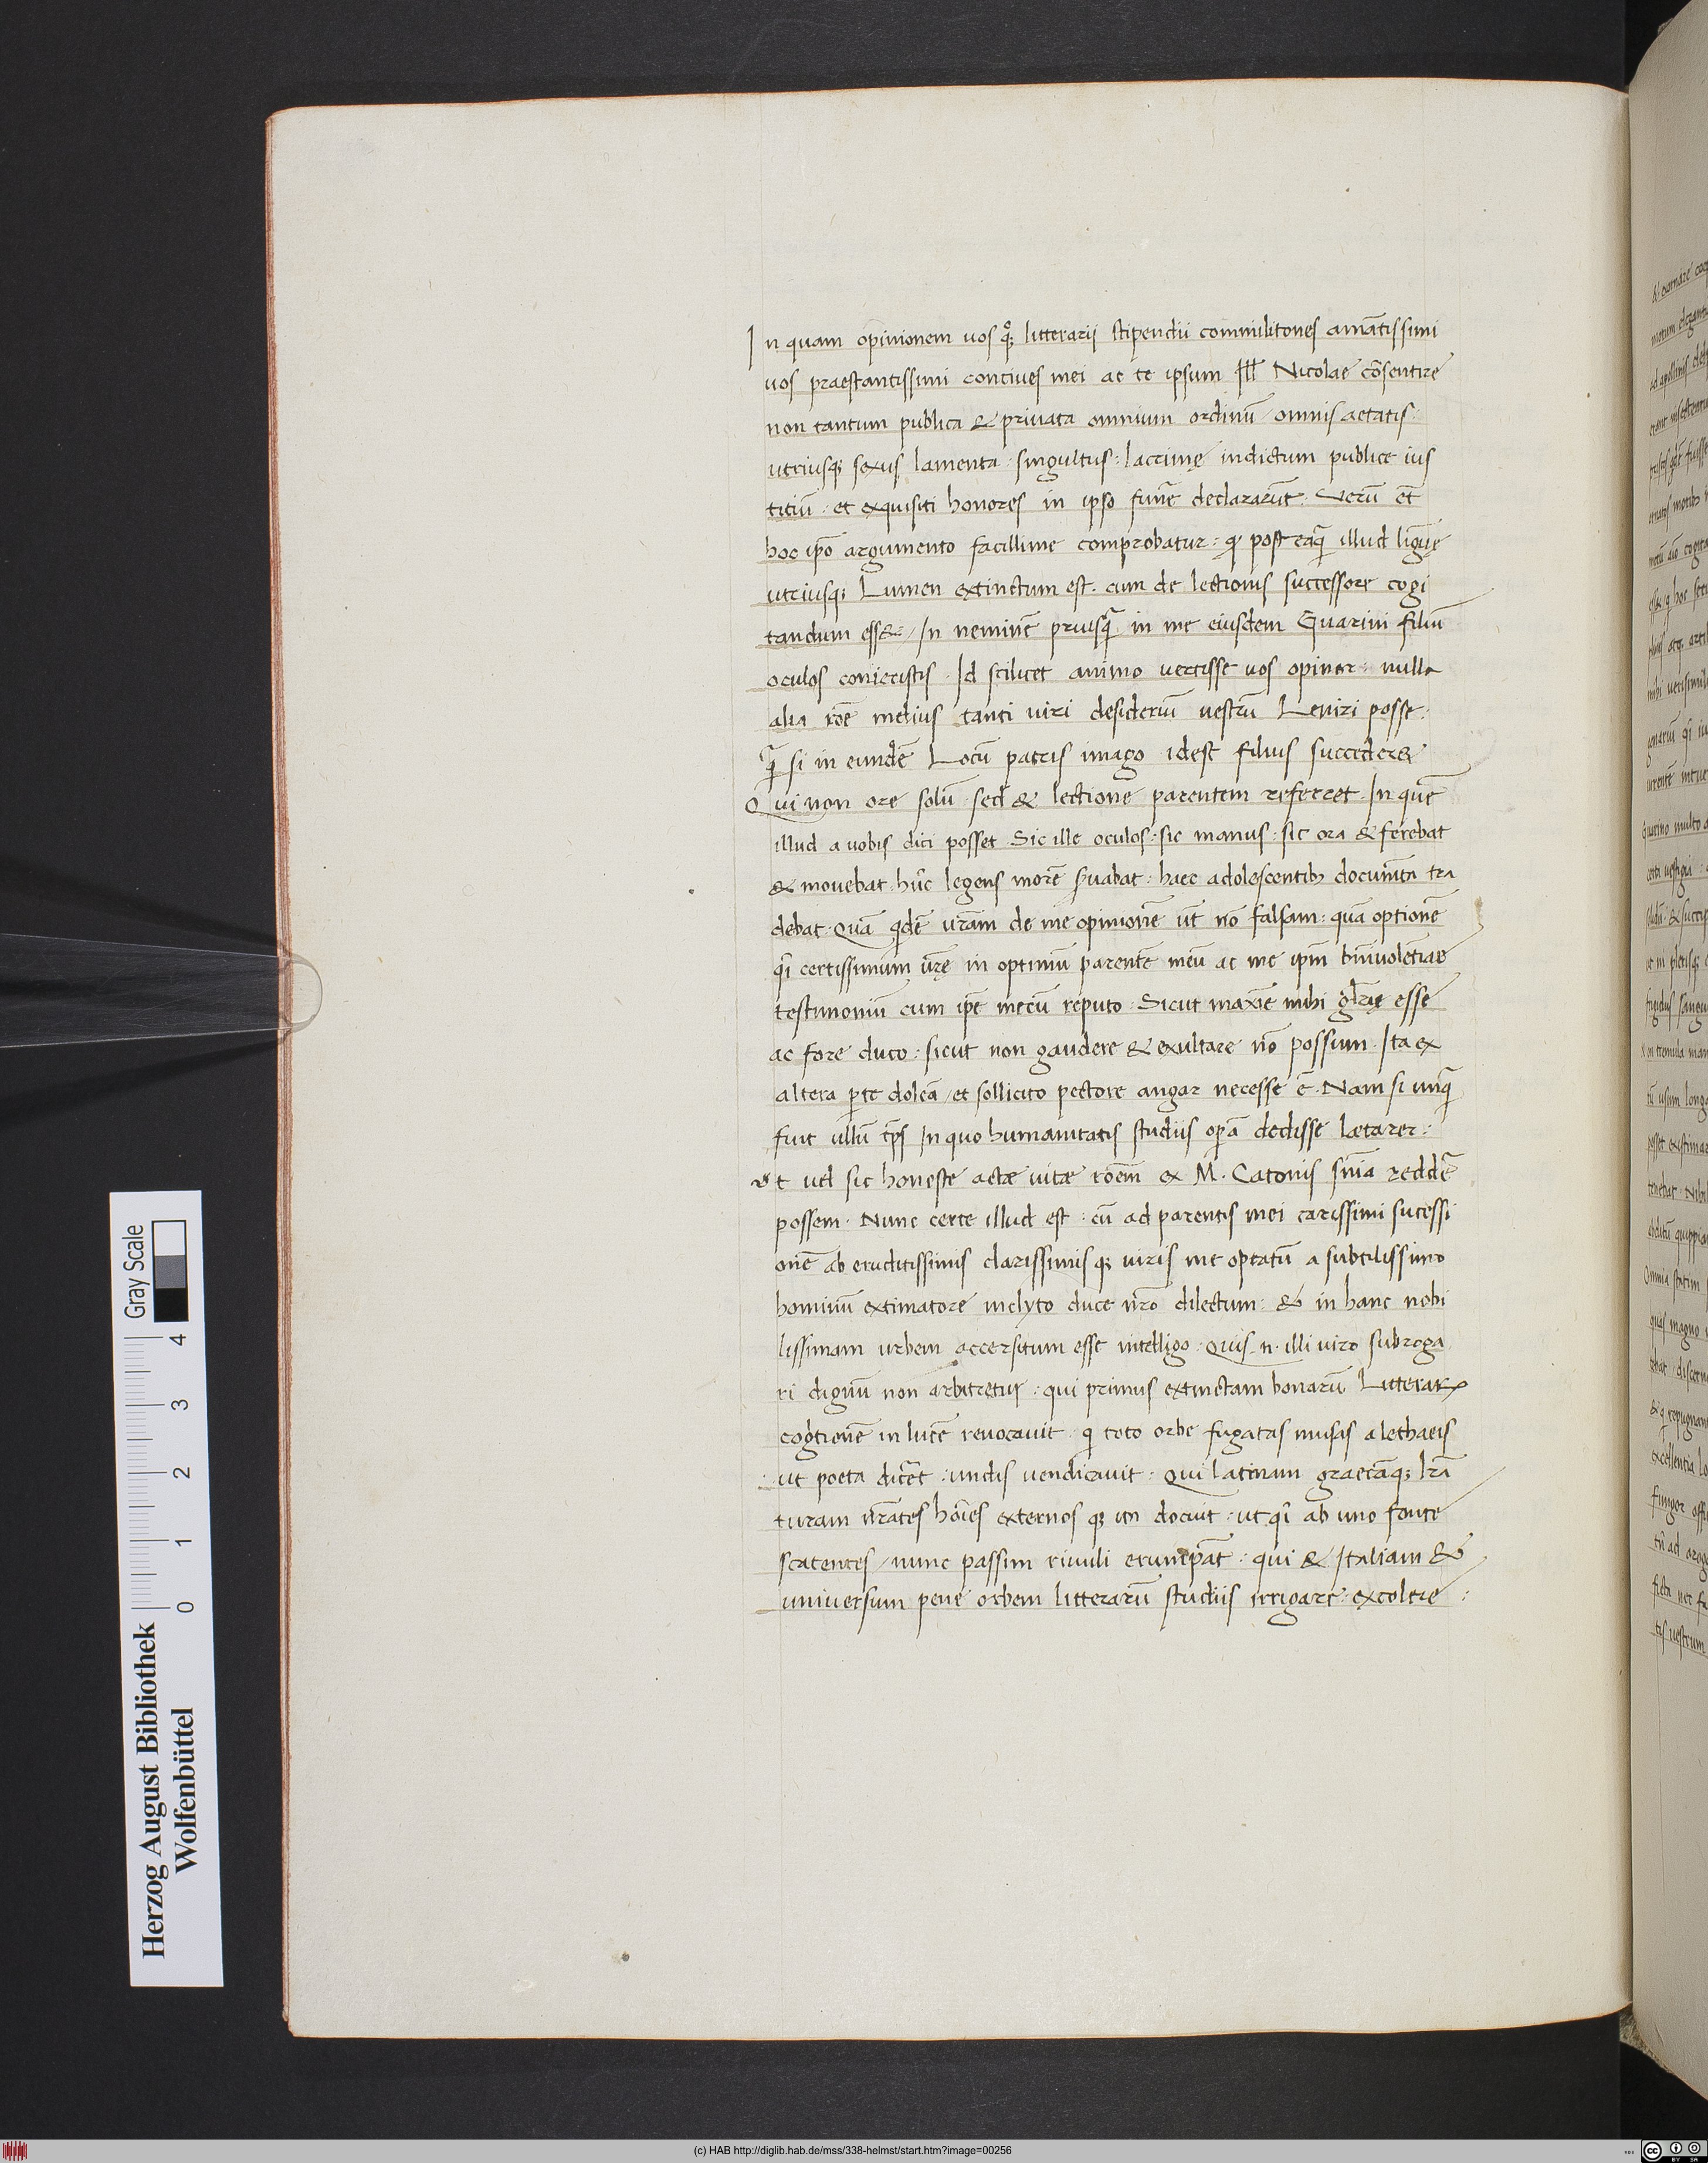 In quam opinionem uos qͦꝫ litterarij stipendii commilitones amãtissimi
uos praestantissimi conciues mei ac te ipsum Ill Nicolae cõsentire
non tantum publica & priuata omnium ordinũ / omnis aetatis:
utriusqꝫ sexus lamenta: singultus: lacrimę indictum publice ius
titiũ: et exquisiti honores in ipso funẽ declararũt: Verũ et̃
hoc ip̃o argumento facillime comprobatur: ꝙ posteaq̃ illud lĩguę
utriusqꝫ Lumen extinctum est. cum de lectionis successore cogi
tandum ess& / In neminẽ priusq̃ in me eiusdem Guarini filiũ
oculos coniecistis. Id scilicet animo uertisse uos opinor: nulla
alia rõe melius tanti uiri desideriũ uestrũ Leniri posse:
q̃ si in eundẽ Locũ patris imago idest filius succeder&
Qui non ore solũ sed & lectione parentem referret. In quẽ
illud a uobis dici posset Sic ille oculos: sic manus: sic ora & ferebat
& mouebat. hũc legens morẽ s̃uabat: haec adolescentibꝫ documẽta tra
debat. Quã qidẽ ur̃am de me opinionẽ ut nõ falsam: quã optionẽ
q̃i certissimum ur̃ę in optimũ parentẽ meũ ac me ip̃m beniuolẽtiae
testimoniũ cum ip̃e mecũ reputo. Sicut maxĩe mihi gl̃rię esse
ac fore duco: sicut non gaudere & exultare nõ possum. Ita ex
altera p̃te doleã / et sollicito pectore angar necesse ẽ. Nam si unq̃
fuit ullũ tp̃s In quo humanitatis studiis op̃ã dedisse lætarer:
et uel sic honeste actæ uitæ rõem ex M. Catonis sñia redder̃
possem. Nunc certe illud est: cũ ad parentis mei carissimi sucessi
onẽ ab eruditissimis clarissimisqꝫ uiris me optatũ a subtilissimo
hominũ extimatore inclyto duce nr̃o dilectum: & in hanc nobi
lissimam urbem accersitum esse intelligo. Quis .n. illi uiro subroga
ri dignũ non arbitretur: qui primus extinctam bonarũ Litterarꝝ
cogtionẽ in lucẽ reuocauit. q toto orbe fugatas musas a lethaeis
ut poeta dicẽt: undis uendicauit. Qui latinam graecãqꝫ lrã
turam nr̃ates hoĩes externosqꝫ itã docuit: ut qi ab uno fonte
scatentes / nunc passim riuuli erumpãt: qui & Italiam &
uniuersum pene orbem litterarũ studiis irrigare: excolere:
Herzog August Bibliothek
Wolfenbüttel
0 1 2 3 4
Gray Scale
(c) HAB http://diglib.hab.de/mss/338-helmst/start.htm?image=00256